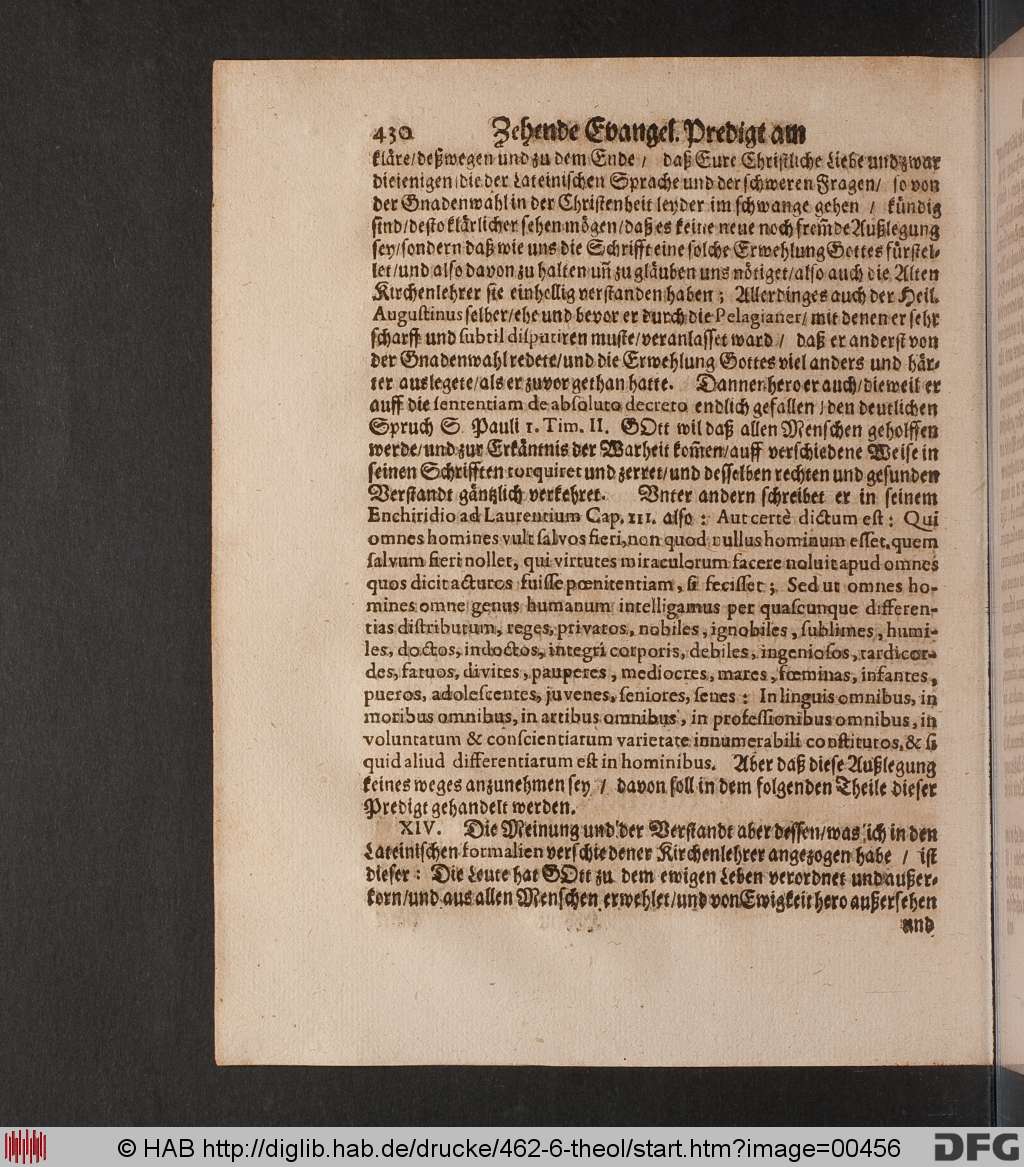 430 Zehende Evangel. Predigt am
kläre/deßwegen und zu dem Ende / daß Eure Christliche Liebe und zwar
diejenigen/die der Lateinischen Sprache und der schweren Fragen/ so von
der Gnadenwahl in der Christenheit leyder im schwange gehen / kündig
sind/desto klärlicher sehen mögen/daß es keine neue noch frem̃de Außlegung
sey/sondern daß wie uns die Schrifft eine solche Erwehlung Gottes fürstel-
let/und also davon zu halten uñ zu gläuben uns nötiget/also auch die Alten
Kirchenlehrer sie einhellig verstanden haben; Allerdinges auch der Heil.
Augustinus selber/ehe und bevor er durch die Pelagianer/ mit denen er sehr
scharff und subtil disputiren muste/veranlasset ward / daß er anderst von
der Gnadenwahl redete/und die Erwehlung Gottes viel anders und här-
ter auslegete/als er zuvor gethan hatte. Dannenhero er auch/dieweil er
auff die sententiam de absoluto decreto endlich gefallen/den deutlichen
Spruch S. Pauli 1. Tim. II. GOtt wil daß allen Menschen geholffen
werde/und zur Erkäntnis der Warheit kom̃en/auff verschiedene Weise in
seinen Schrifften torquiret und zerret/und desselben rechten und gesunden
Verstandt gäntzlich verkehret. Unter andern schreibet er in seinem
Enchiridio ad Laurentium Cap. III. also: Aut certè dictum est: Qui
omnes homines vult salvos fieri, non quod nullus hominum esset, quem
salvum fieri nollet, qui virtutes miraculorum facere noluit apud omnes
quos dicit acturos fuisse pœnitentiam, si fecisset; Sed ut omnes ho-
mines omne genus humanum intelligamus per quascunque differen-
tias distributum, reges, privatos, nobiles, ignobiles, sublimes, humi-
les, doctos, indoctos, integri corporis, debiles, ingeniosos, tardicor-
des, fatuos, divites, pauperes, mediocres, mares, fœminas, infantes,
pueros, adolescentes, juvenes, seniores, senes: In linguis omnibus, in
moribus omnibus, in artibus omnibus, in professionibus omnibus, in
voluntatum & conscientiarum varietate innumerabili constitutos, & si
quid aliud differentiarum est in hominibus. Aber daß diese Außlegung
keines weges anzunehmen sey / davon soll in dem folgenden Theile dieser
Predigt gehandelt werden.
XIV. Die Meinung und der Verstandt aber dessen/was ich in den
Lateinischen formalien verschiedener Kirchenlehrer angezogen habe / ist
dieser: Die Leute hat GOtt zu dem ewigen Leben verordnet und außer-
korn/und aus allen Menschen erwehlet/und von Ewigkeit hero außersehen
und
© HAB http://diglib.hab.de/drucke/462-6-theol/start.htm?image=00456
DFG